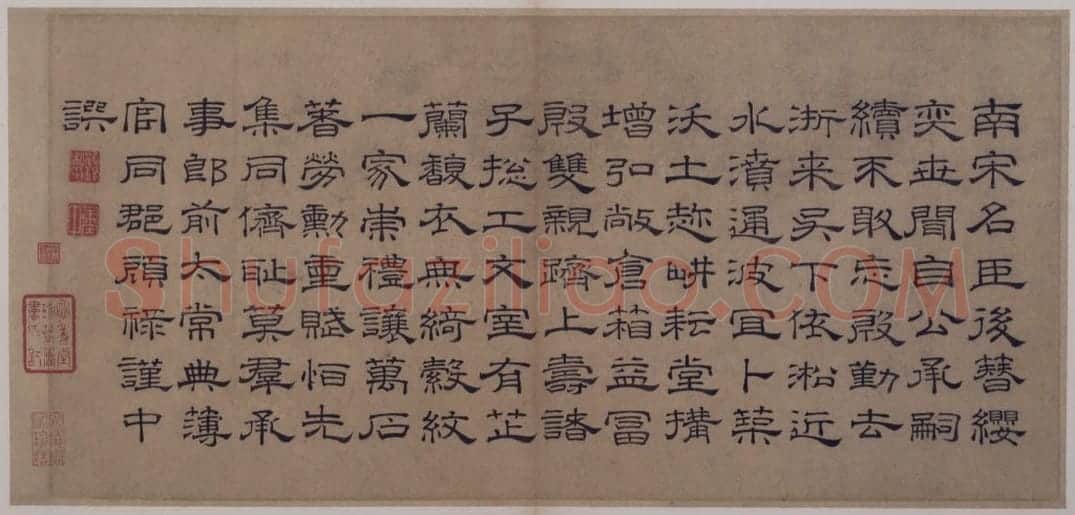 南宋名臣後簪纓
奕世間自公承嗣
續不敢忘殷勤去
浙来吴下依淞近
水濆通波冝卜築
沃土畊耘堂搆
增弘敞倉箱益冨
殷雙親躋上壽諸
子捴工文室有芷
蘭馥衣無綺縠紋
一家崇禮讓萬石
著勞勳重賦怕先
集同儕恥莫羣承
事郎前太常典薄
官同郡顧祿謹中
譔
Shufaziliao.COM